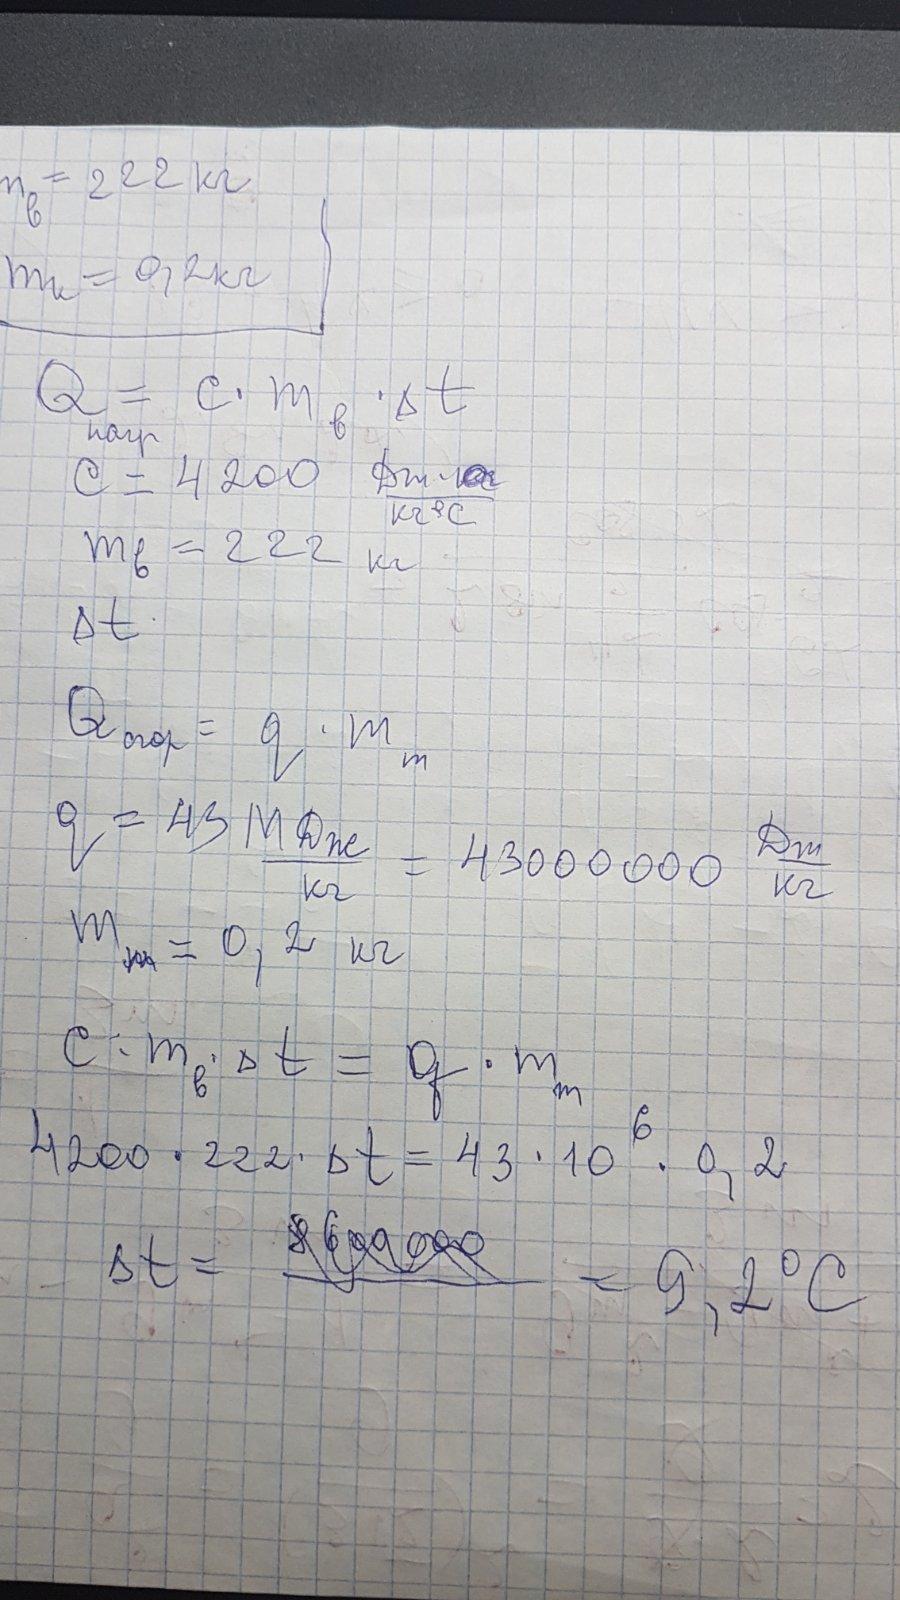 m_в = 222 кг
m_к = 0,2 кг
Q_нагр = c · m_в · Δt
c = 4200 Дж/кг°C
m_в = 222 кг
Δt
Q_сгор = q · m_т
q = 43 МДж/кг = 43000000 Дж/кг
m_т = 0,2 кг
c · m_в · Δt = q · m_т
4200 · 222 · Δt = 43 · 10⁶ · 0,2
Δt = = 9,2°C